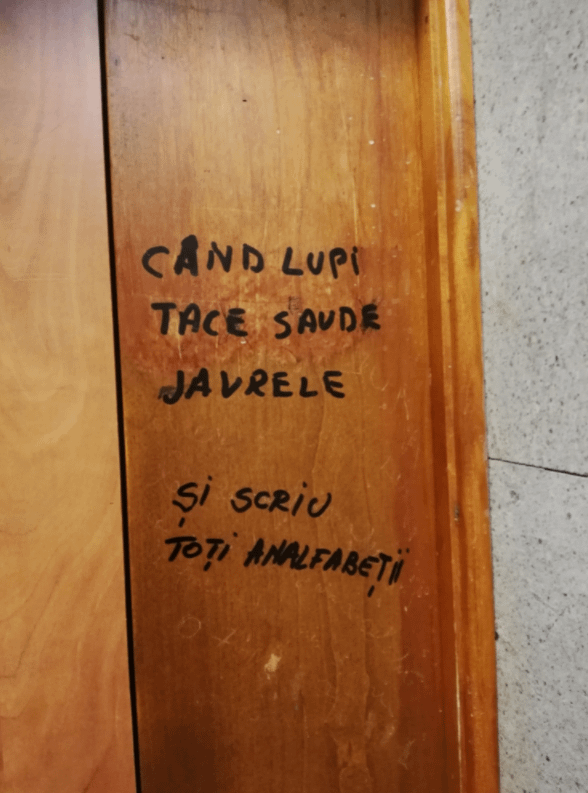 CÂND LUPI
TACE SAUDE
JAVRELE
ȘI SCRIU
TOȚI ANALFABEȚII